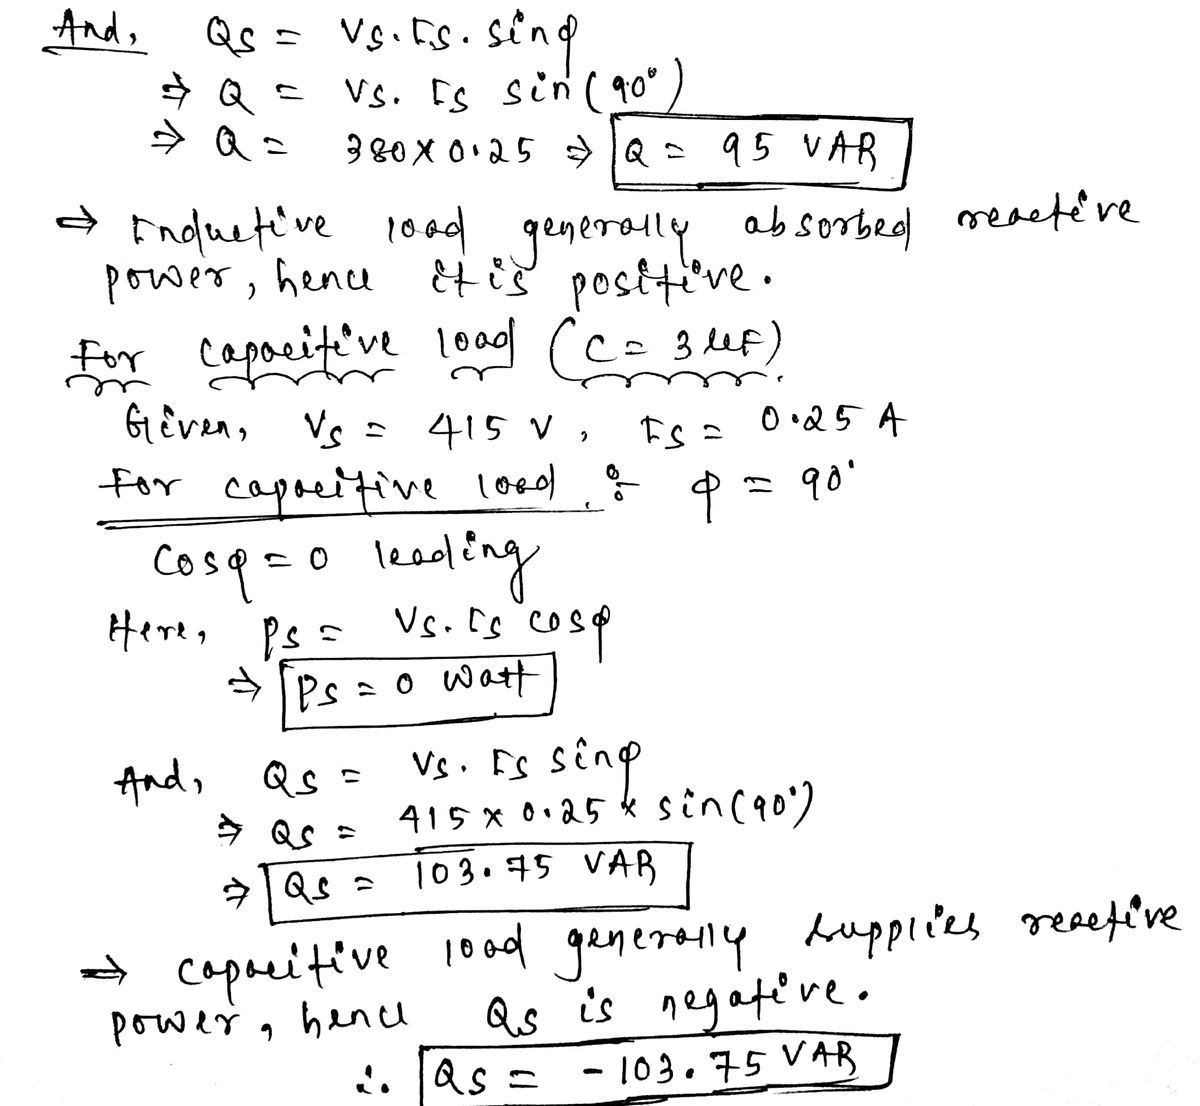 And, Qs = Vs. Is. sinφ
⇒ Q = Vs. Is sin(90°)
⇒ Q = 380 × 0.25 ⇒ Q = 95 VAR
⇒ Inductive load generally absorbed reactive
power, hence it is positive.
For capacitive load (C = 3 μF)
Given, Vs = 415 V, Is = 0.25 A
For capacitive load : φ = 90°
Cosφ = 0 leading
Here, Ps = Vs. Is cosφ
⇒ Ps = 0 Watt
And, Qs = Vs. Is sinφ
⇒ Qs = 415 × 0.25 × sin(90°)
⇒ Qs = 103.75 VAR
⇒ capacitive load generally supplies reactive
power, hence Qs is negative.
∴ Qs = - 103.75 VAR